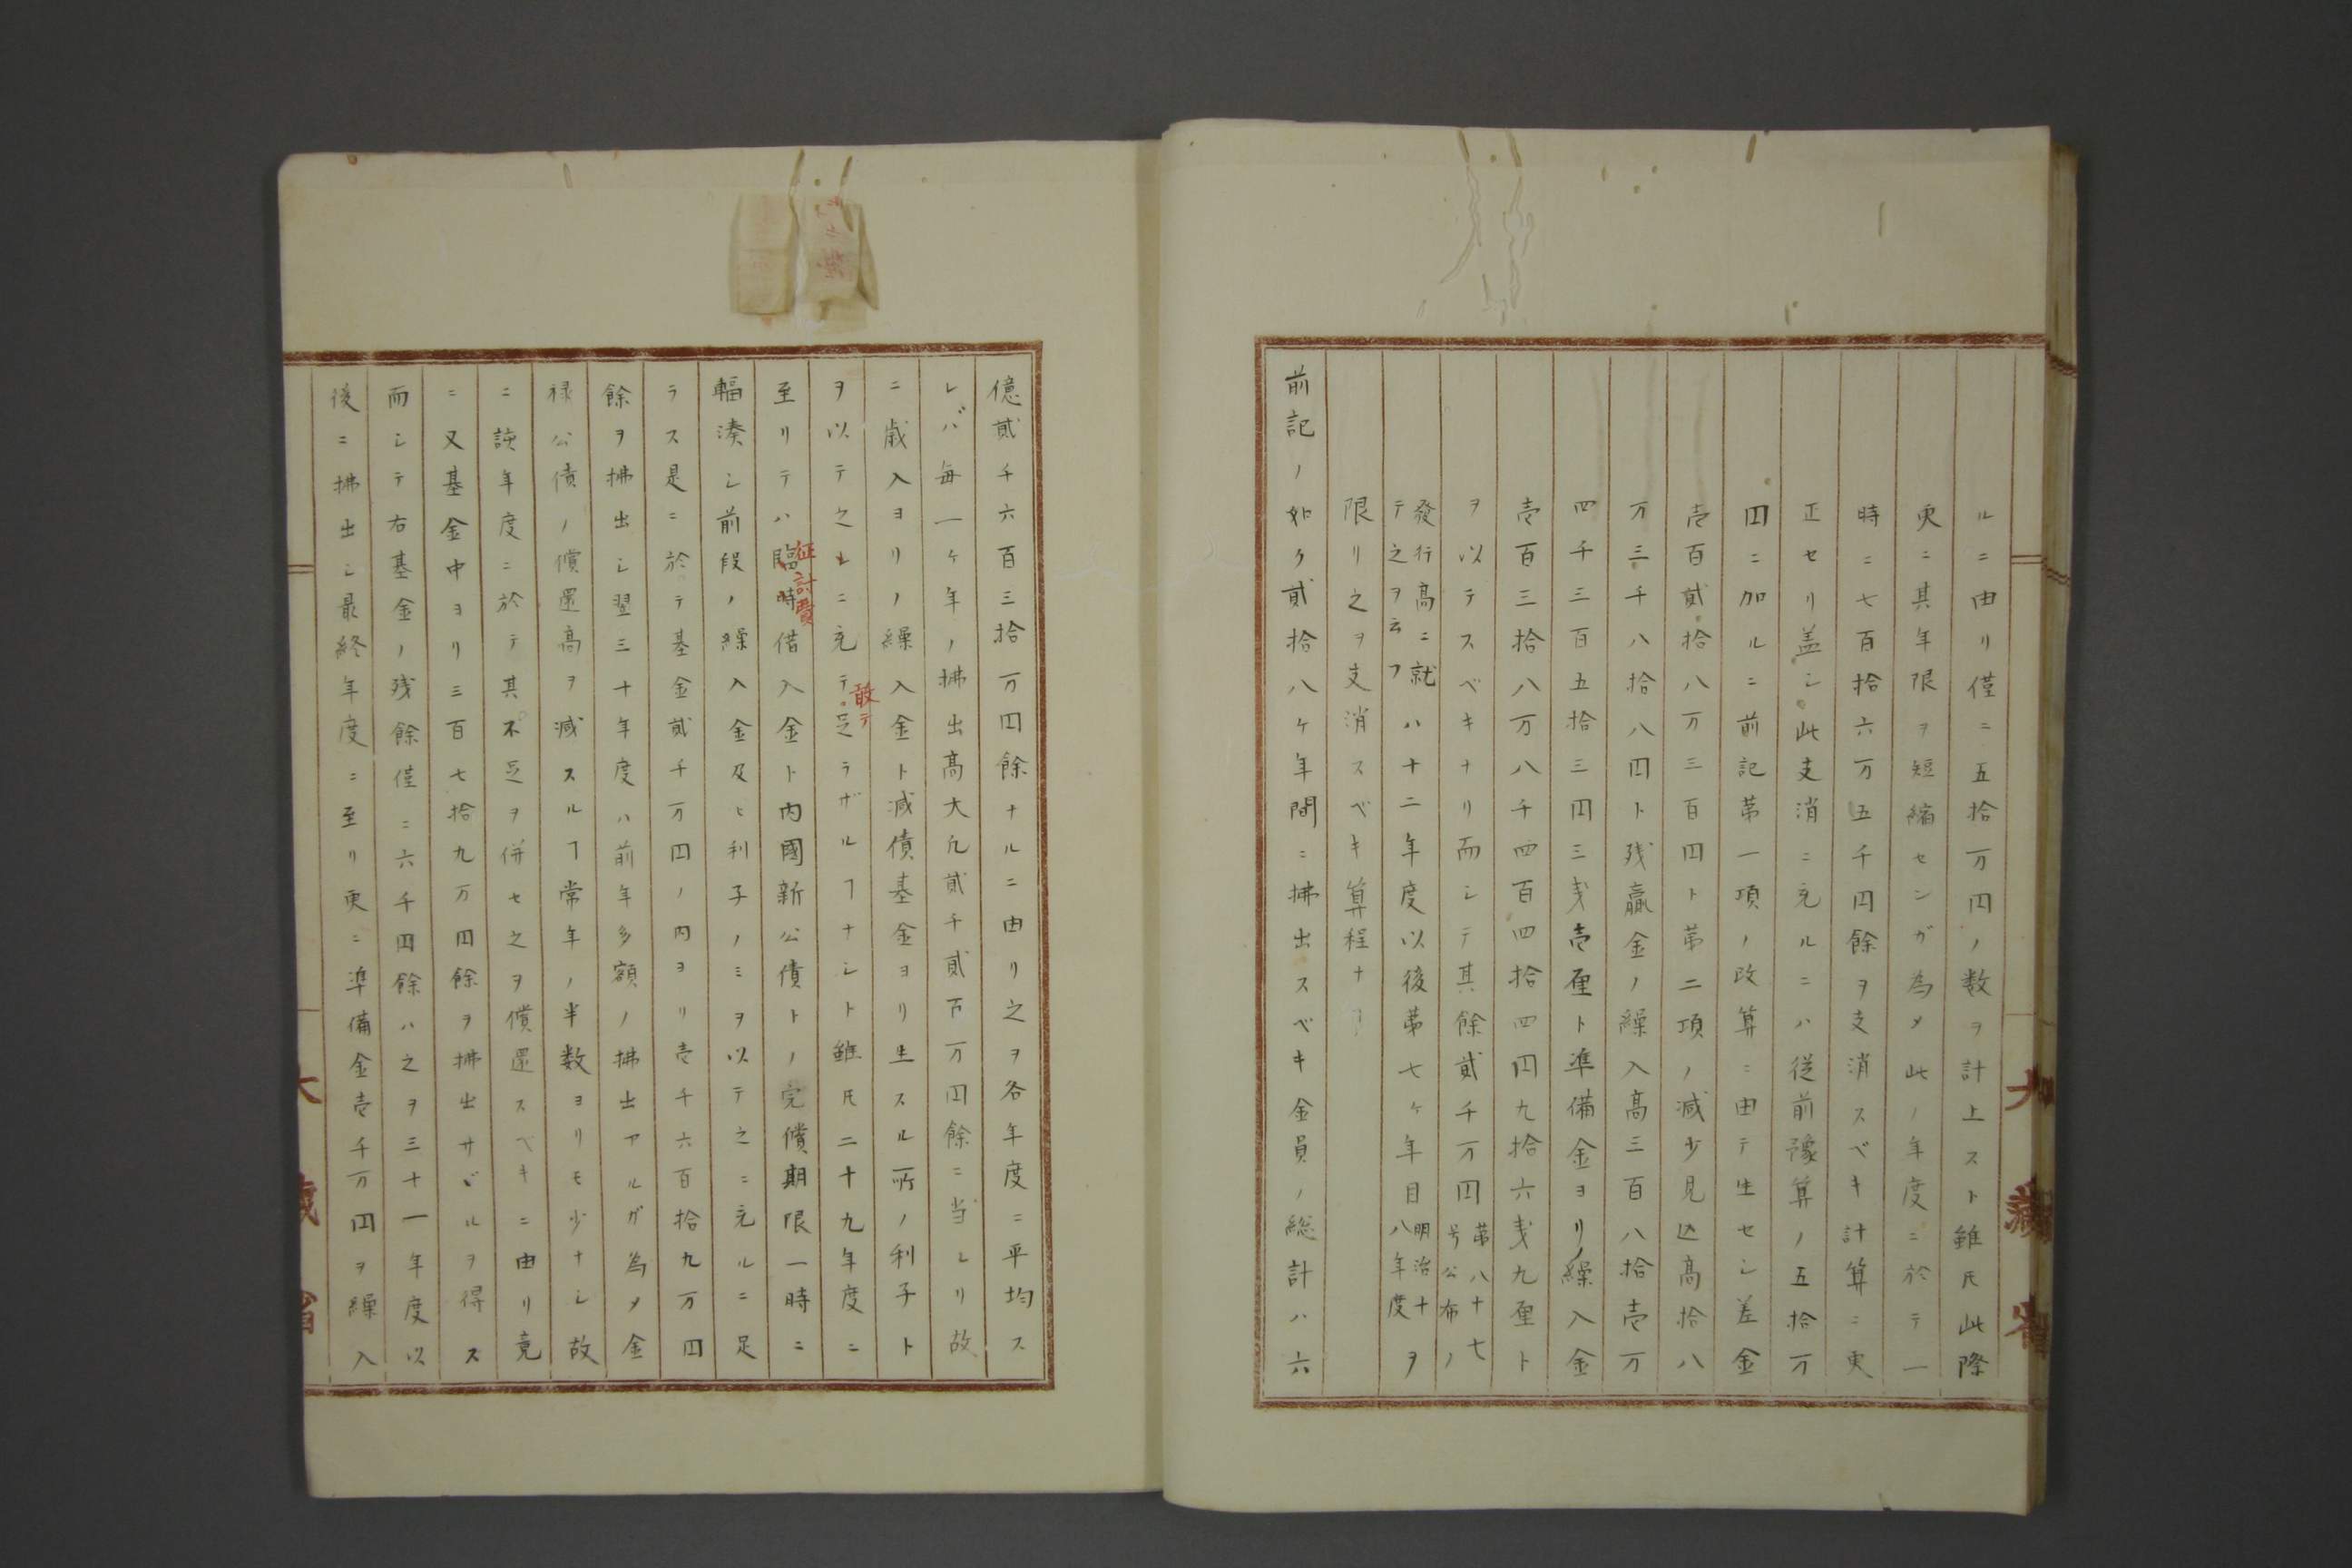 ルニ由リ僅ニ五拾万円ノ数ヲ計上スト雖𪜈此際
更ニ其年限ヲ短縮センガ為メ此ノ年度ニ於テ一
時ニ七百拾六万五千円餘ヲ支消スベキ計算ニ更
正セリ盖シ此支消ニ充ルニハ従前豫算ノ五拾万
円ニ加ルニ前記第一項ノ改算ニ由テ生セシ差金
壱百貳拾八万三百円ト第二項ノ減少見込高拾八
万三千八拾八円ト残贏金ノ繰入高三百八拾壱万
四千三百五拾三円三戋壱厘ト準備金ヨリ繰入金
壱百三拾八万八千四百四拾四円九拾六戋九厘ト
ヲ以テスベキナリ而シテ其餘貳千万円第八十七号公布ノ
發行高ニ就テ之ヲ云フハ十二年度以後第七ヶ年目明治十八年度ヲ
限リ之ヲ支消スベキ算程ナリ
前記ノ如ク貳拾八ヶ年間ニ拂出スベキ金員ノ総計ハ六
億貳千六百三拾万円餘ナルニ由リ之ヲ各年度ニ平均ス
レバ毎一ヶ年ノ拂出高大凡貳千貳百万円餘ニ当レリ故
ニ歳入ヨリノ繰入金ト減債基金ヨリ生スル所ノ利子ト
ヲ以テ之レニ充テ敢テ足ラザルヿナシト雖𪜈二十九年度ニ
至リテハ臨時征討費借入金ト内國新公債トノ完償期限一時ニ
輻湊シ前段ノ繰入金及ヒ利子ノミヲ以テ之ニ充ルニ足
ラス是ニ於テ基金貳千万円ノ内ヨリ壱千六百拾九万円
餘ヲ拂出シ翌三十年度ハ前年多額ノ拂出アルガ為メ金
禄公債ノ償還高ヲ減スルヿ常年ノ半数ヨリモ少ナシ故
ニ該年度ニ於テ其不足ヲ併セ之ヲ償還スベキニ由リ竟
ニ又基金中ヨリ三百七拾九万円餘ヲ拂出サヾルヲ得ス
而シテ右基金ノ残餘僅ニ六千円餘ハ之ヲ三十一年度以
後ニ拂出シ最終年度ニ至リ更ニ準備金壱千万円ヲ繰入
大藏省